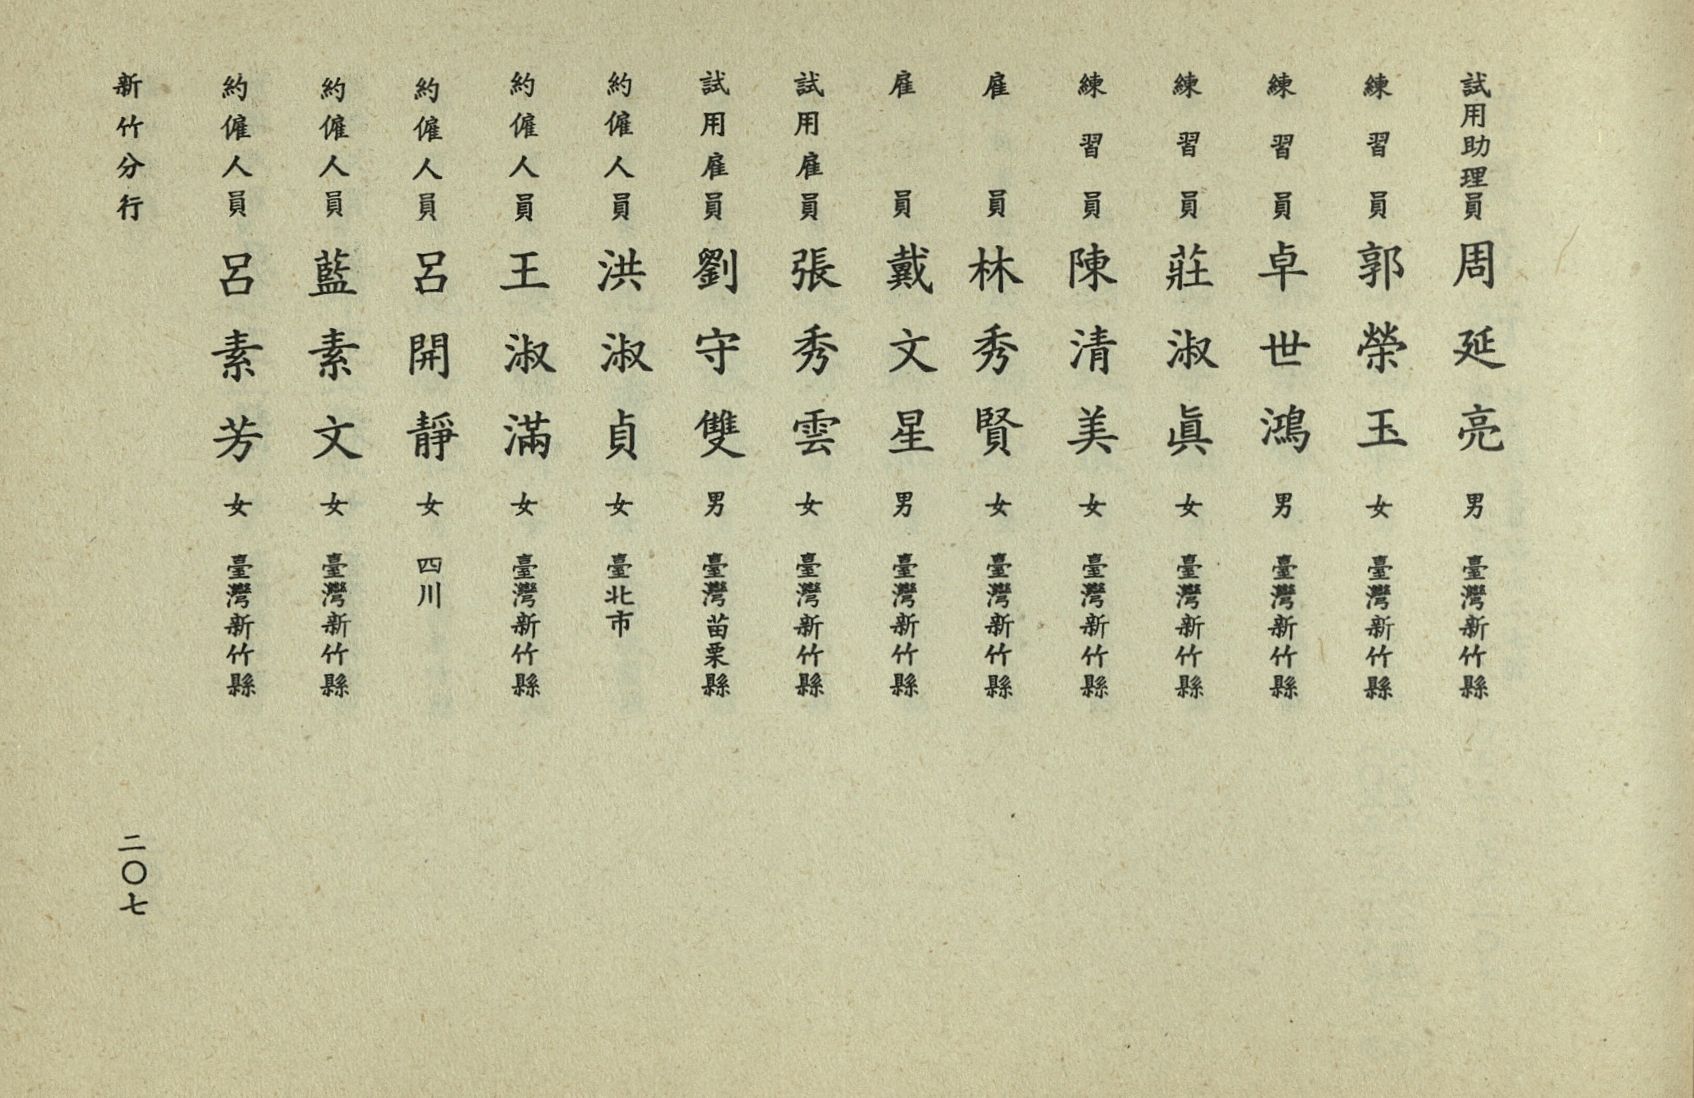 試用助理員周延亮男臺灣新竹縣
練習員郭榮玉女臺灣新竹縣
練習員卓世鴻男臺灣新竹縣
練習員莊淑眞女臺灣新竹縣
練習員陳清美女臺灣新竹縣
雇員林秀賢女臺灣新竹縣
雇員戴文星男臺灣新竹縣
試用雇員張秀雲女臺灣新竹縣
試用雇員劉守雙男臺灣苗栗縣
約僱人員洪淑貞女臺北市
約僱人員王淑滿女臺灣新竹縣
約僱人員呂開靜女四川
約僱人員藍素文女臺灣新竹縣
約僱人員呂素芳女臺灣新竹縣
新竹分行
二〇七